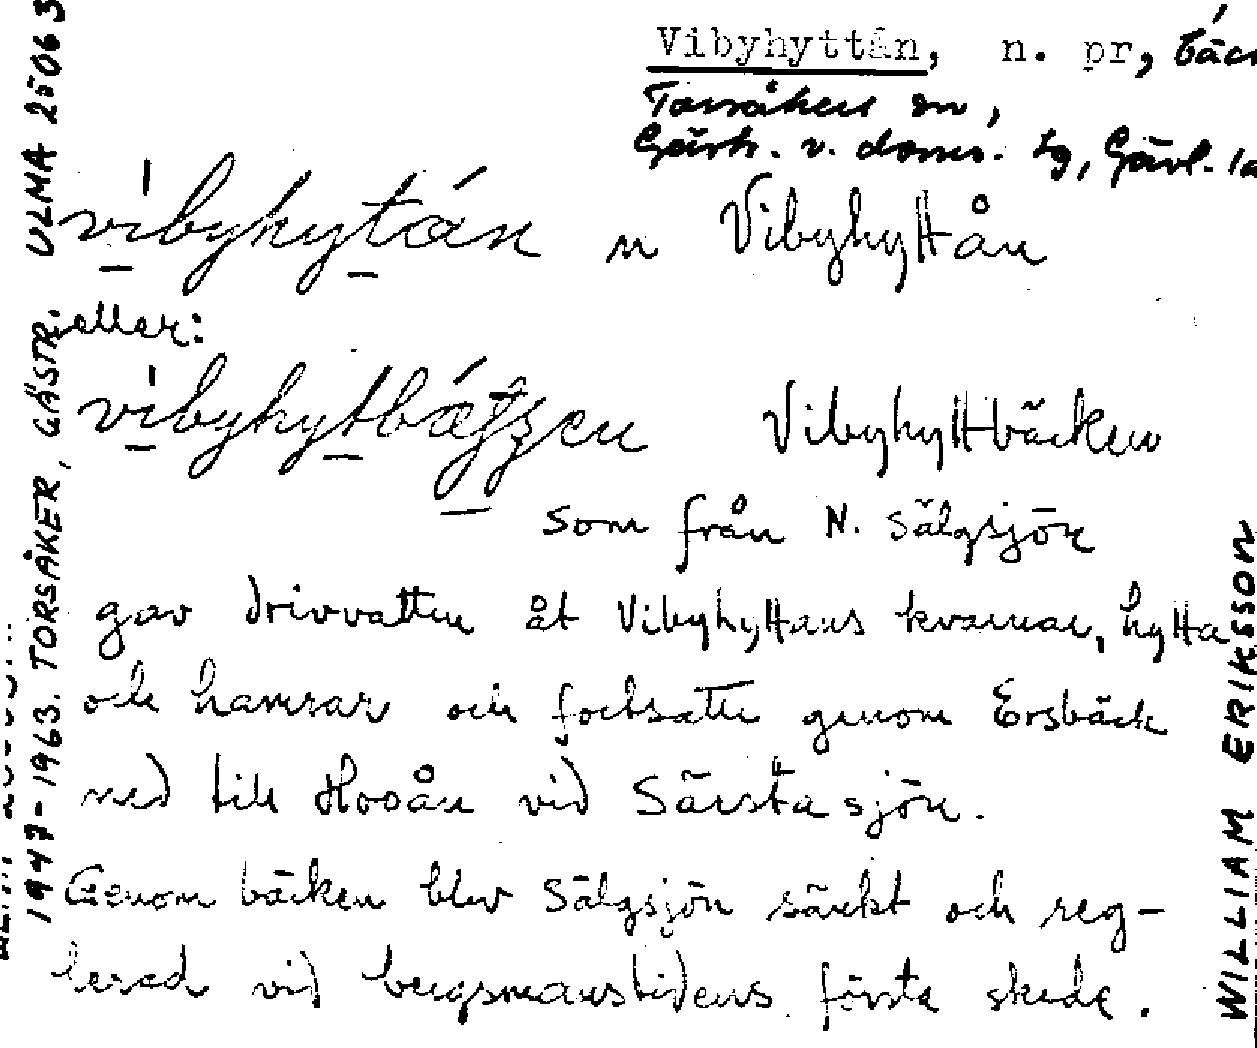 Vibyhyttån, n. pr, bäck
Torsåker sn,
Gästr. v. doms. tg, Gävl. lä
vibyhytån n Vibyhyttån
eller:
vibyhytbätʂen Vibyhyttbäcken
som från N. Sälgsjön
gav drivvatten åt Vibyhyttans kvarnar, hytta
och hamrar och fortsatte genom Ersbäck
ned till Hoån vid Särstasjön.
Genom bäcken blev Sälgsjön sänkt och reg-
lerad vid bergsmanstidens första skede.
1947-1963. TORSÅKER, GÄSTR. ULMA 25063
WILLIAM ERIKSSON